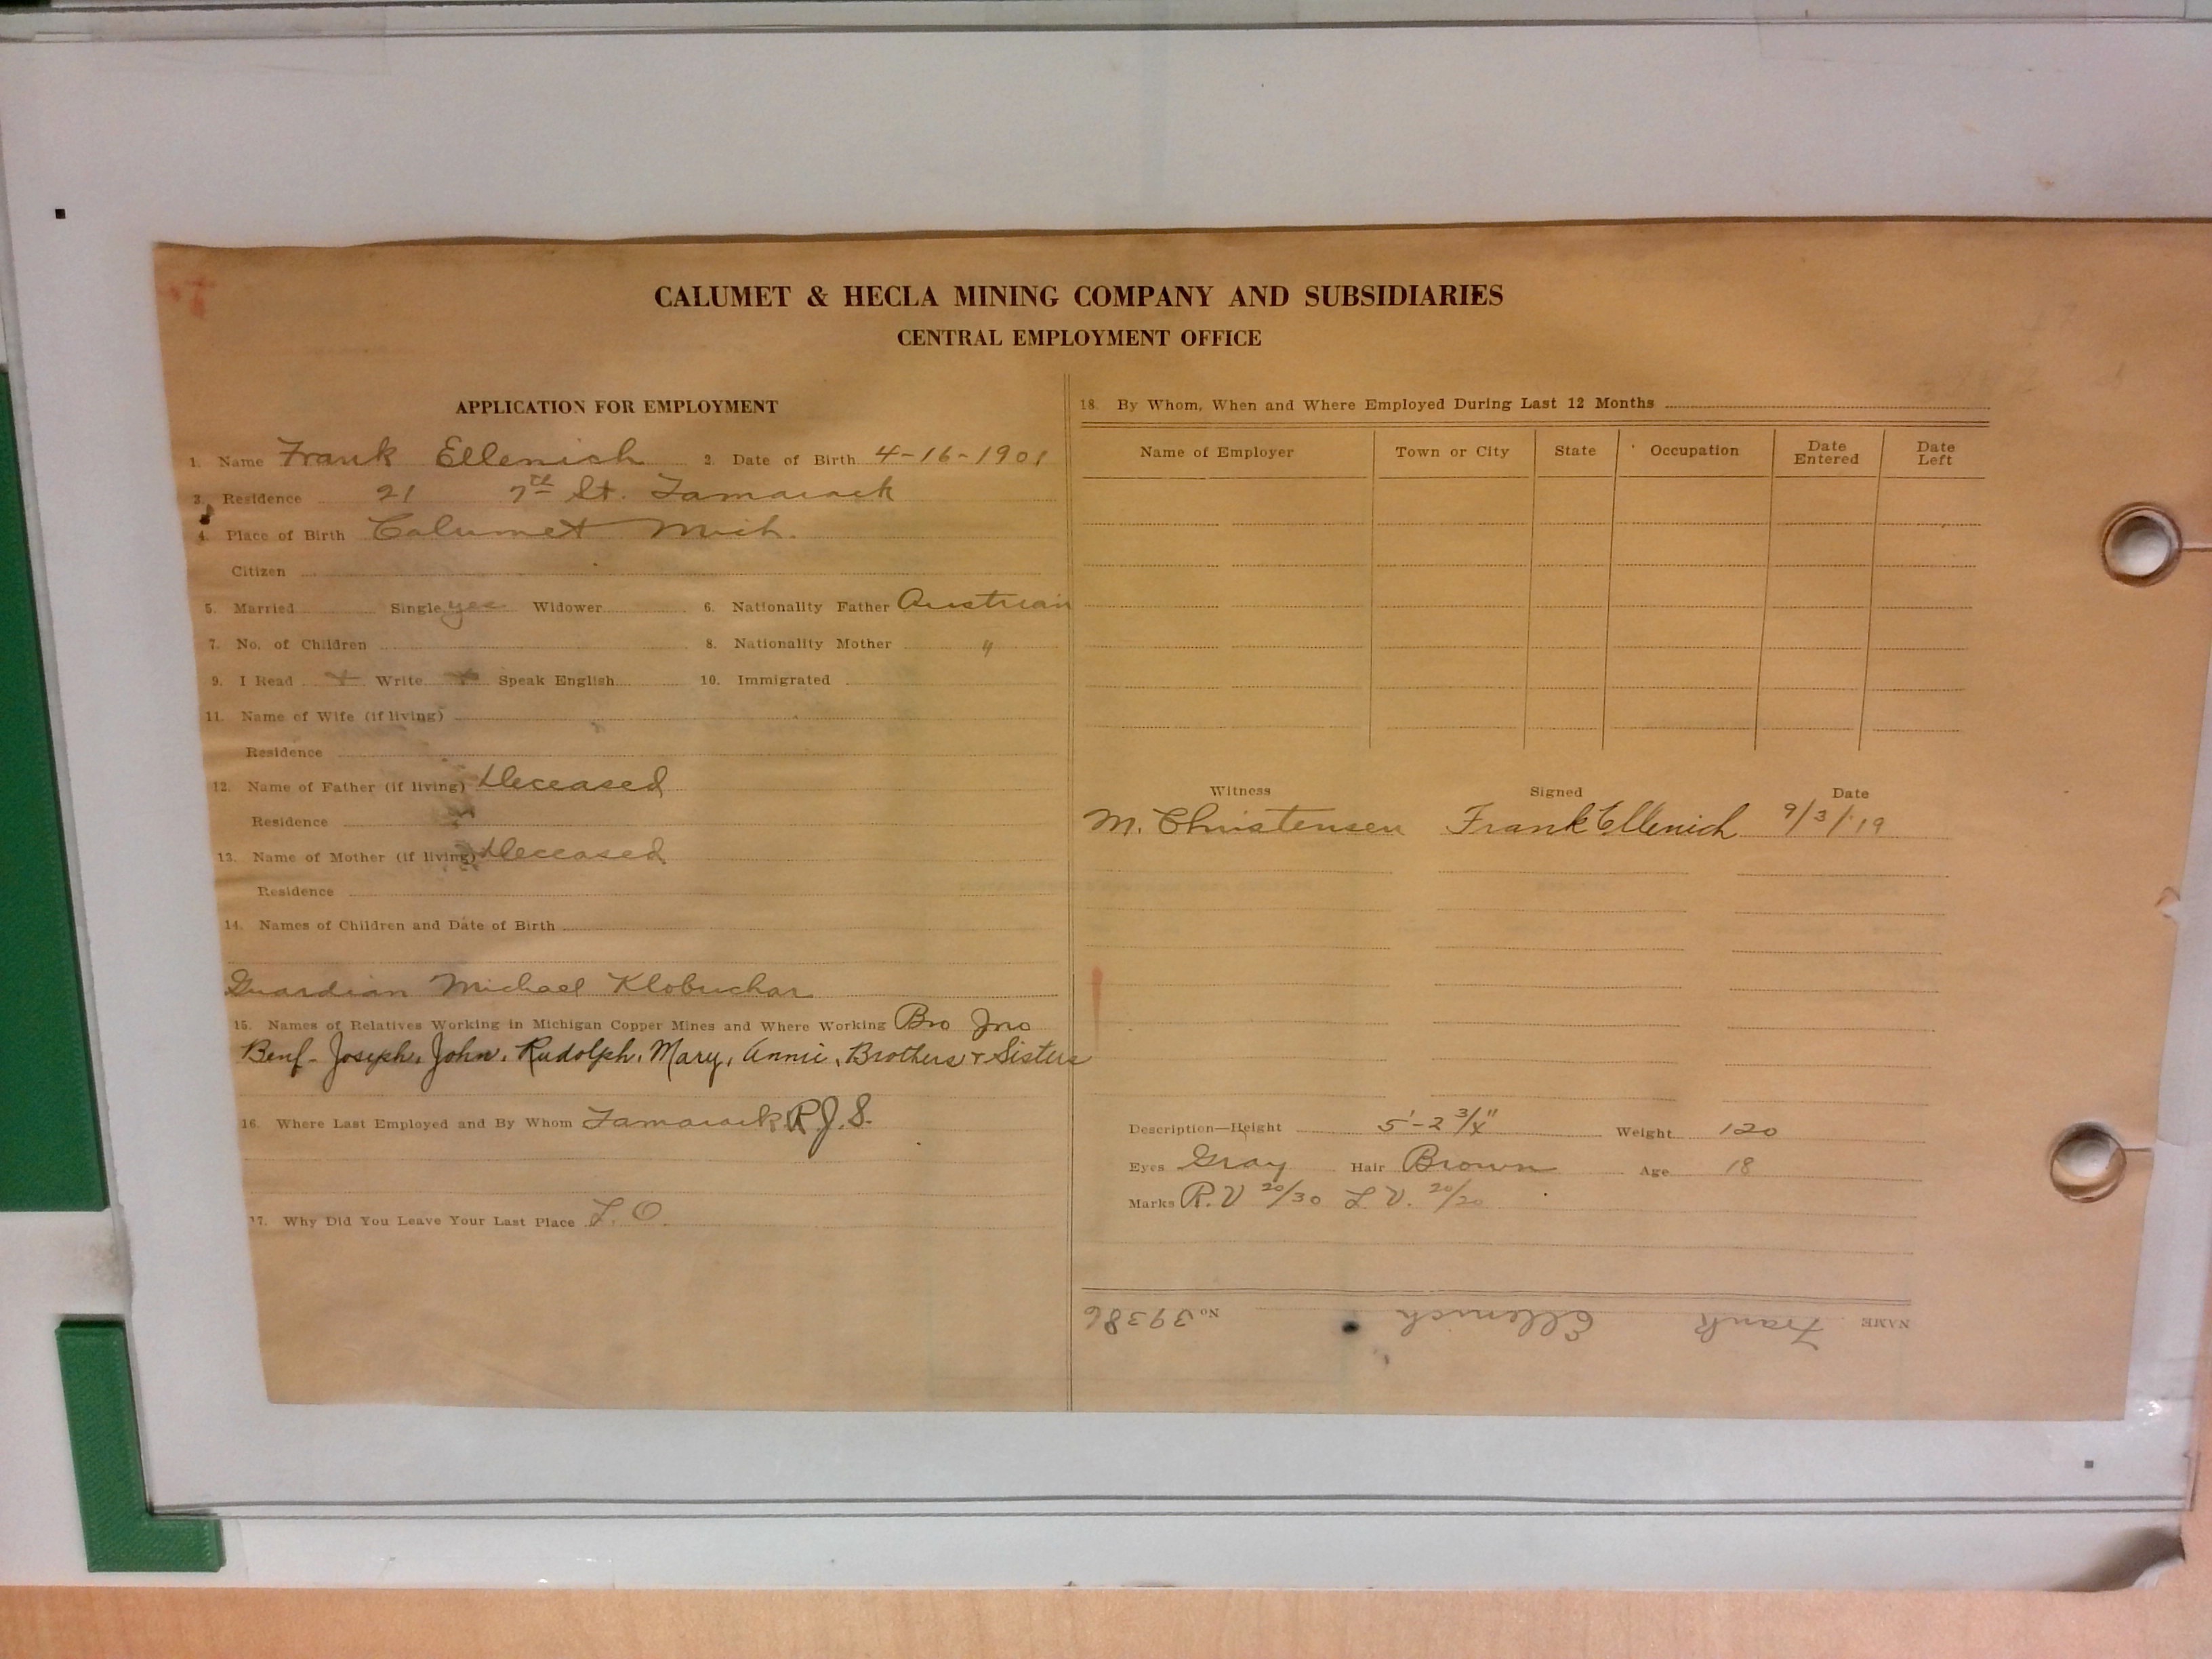 CALUMET & HECLA MINING COMPANY AND SUBSIDIARIES
CENTRAL EMPLOYMENT OFFICE
APPLICATION FOR EMPLOYMENT
1. Name Frank Ellenich 2. Date of Birth 4-16-1901
3. Residence 21 7th St. Tamarack
4. Place of Birth Calumet Mich.
Citizen
5. Married Single yes Widower 6. Nationality Father Austrian
7. No. of Children 8. Nationality Mother "
9. I Read x Write x Speak English 10. Immigrated
11. Name of Wife (if living)
Residence
12. Name of Father (if living) Deceased
Residence
13. Name of Mother (if living) Deceased
Residence
14. Names of Children and Date of Birth
Guardian Michael Klobuchar
15. Names of Relatives Working in Michigan Copper Mines and Where Working Bro Jno
Benf- Joseph, John, Rudolph, Mary, Annie, Brothers + Sisters
16. Where Last Employed and By Whom Tamarack R.J.S.
17. Why Did You Leave Your Last Place L.O.
18. By Whom, When and Where Employed During Last 12 Months
Name of Employer Town or City State Occupation Date Entered Date Left
Witness Signed Date
M. Christensen Frank Ellenich 9/3/19
Description—Height 5'-2 3/4" Weight 120
Eyes Gray Hair Brown Age 18
Marks R.V 20/30 L.V. 20/20
NAME Frank Ellenich No 39386